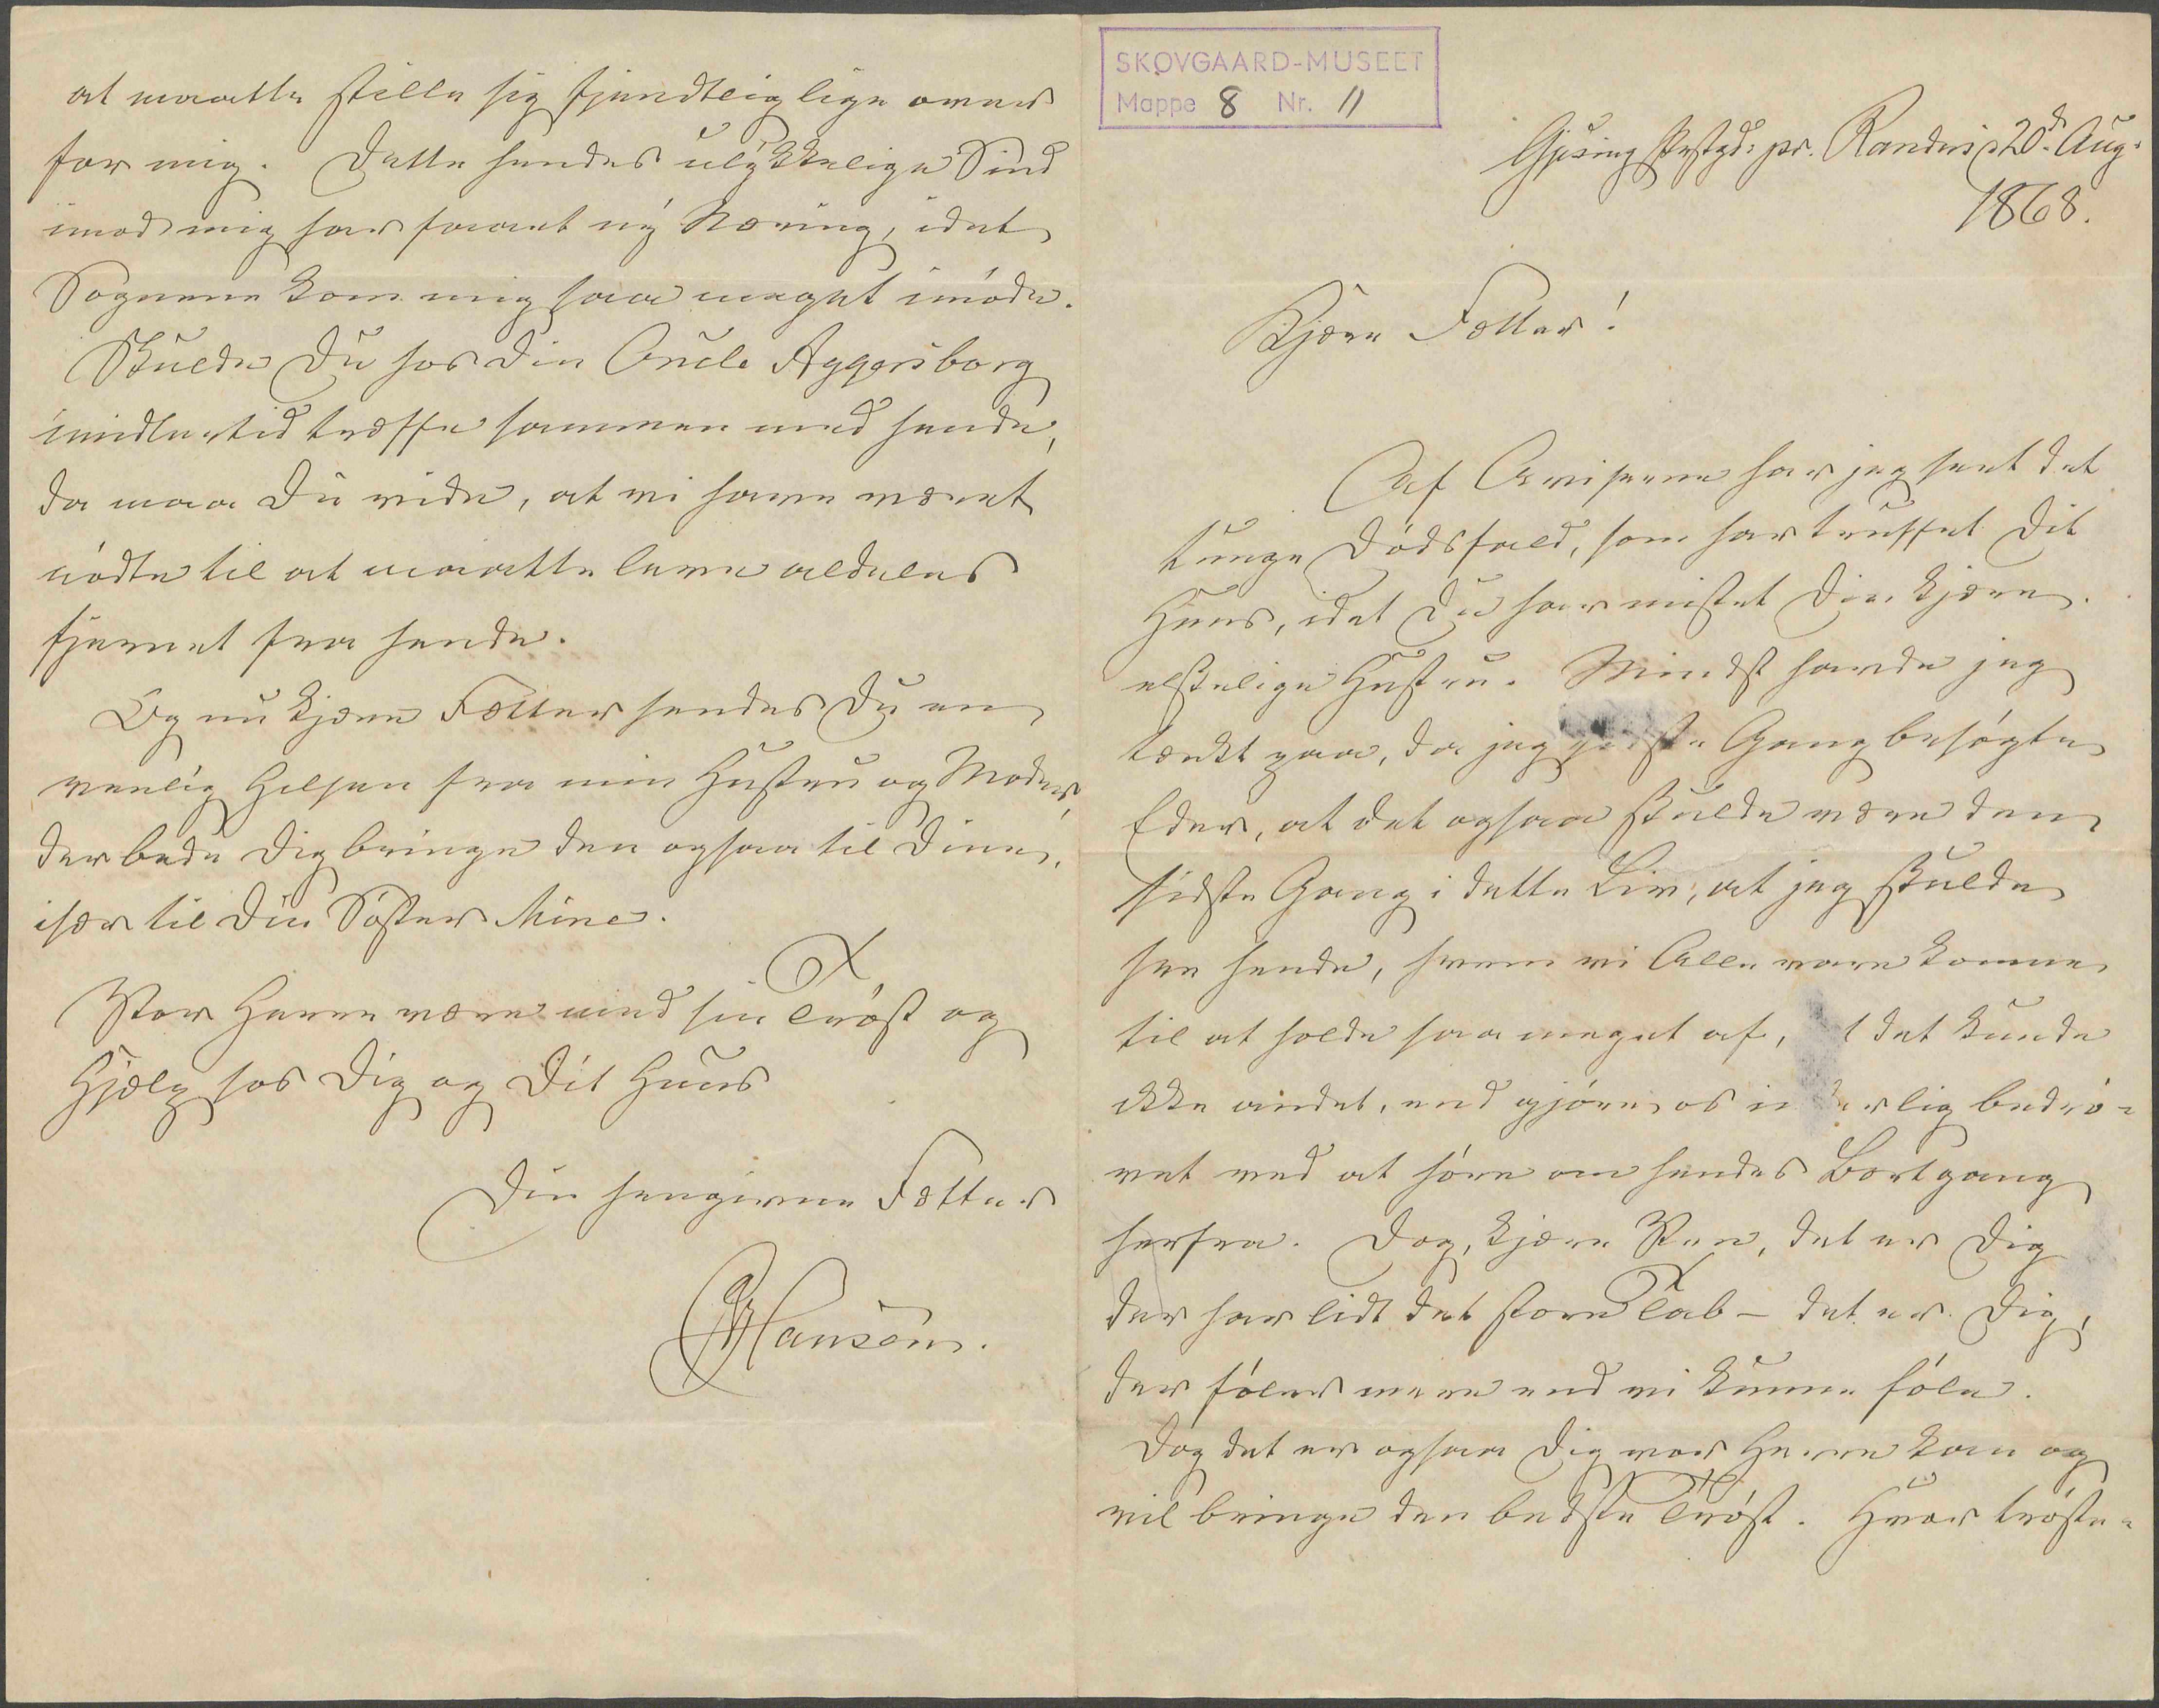 SKOVGAARD-MUSEET
Mappe 8 Nr. 11
Gjesing Prstgd. pr. Randers d 20d. Aug.
1868.
Kjære Fætter!
Af Aviserne har jeg seet det
tunge Dødsfald, som har truffet Dit
Huus, idet Du har mistet Din kjære
elskelige Hustru. Mindst havde jeg
tænkt paa, da jeg sidste Gang besøgte
Eder, at det ogsaa skulde være den
sidste Gang i dette Liv, at jeg skulde
see hende, hvem vi Alle vare komne
til at holde saa meget af, t det kunde
ikke andet, end gjøre os inderlig bedrø-
vet ved at høre om hendes Bortgang
herfra. Dog, kjære Ven, det er Dig
der har lidt det store Tab – det er Dig,
der føler mere end vi kunne føle.
Dog det er ogsaa Dig vor Herre kan og
vil bringe den bedste Trøst. Hvor trøste-
at maatte stille sig fjendtlig lige over
for mig. Dette hendes ulykkelige Sind
imod mig har faaet ny Næring, idet
Sognene kom mig saa meget imøde.
Skulde Du hos Din Oncle Aggersborg
imidlertid træffe sammen med hende,
da maa Du vide, at vi have været
nødte til at maatte leve aldeles
fjernet fra hende.
Og nu kjære Fætter sendes Du en
venlig Hilsen fra min Hustru og Moder,
der bede Dig bringe den ogsaa til Dine,
især til Din Søster Mine.
Vor Herre være med sin Trøst og
Hjælp hos Dig og Dit Huus
Din hengivne Fætter
Hansen.